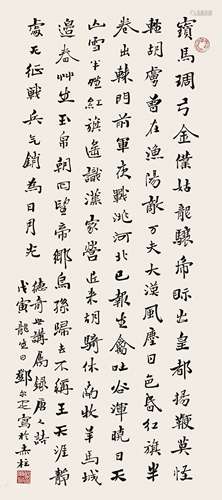 寶馬琱弓金僕姑龍驤虎眎出皇都揚鞭莫怪
輕胡虜曾在漁陽敵万夫大漠風塵日色昏紅旗半
卷出轅門前軍夜戰洮河北已報生禽吐谷渾曉日天
山雪半晴紅旗遙識漢家營近來胡騎休南牧羊馬城
邊春艸生玉帛朝回望帝鄉烏孫歸去不稱王天涯靜
處无征戰兵气銷為日月光
德奇世講屬錄唐人詩
戊寅龍生日鄧尔疋寫於赤柱